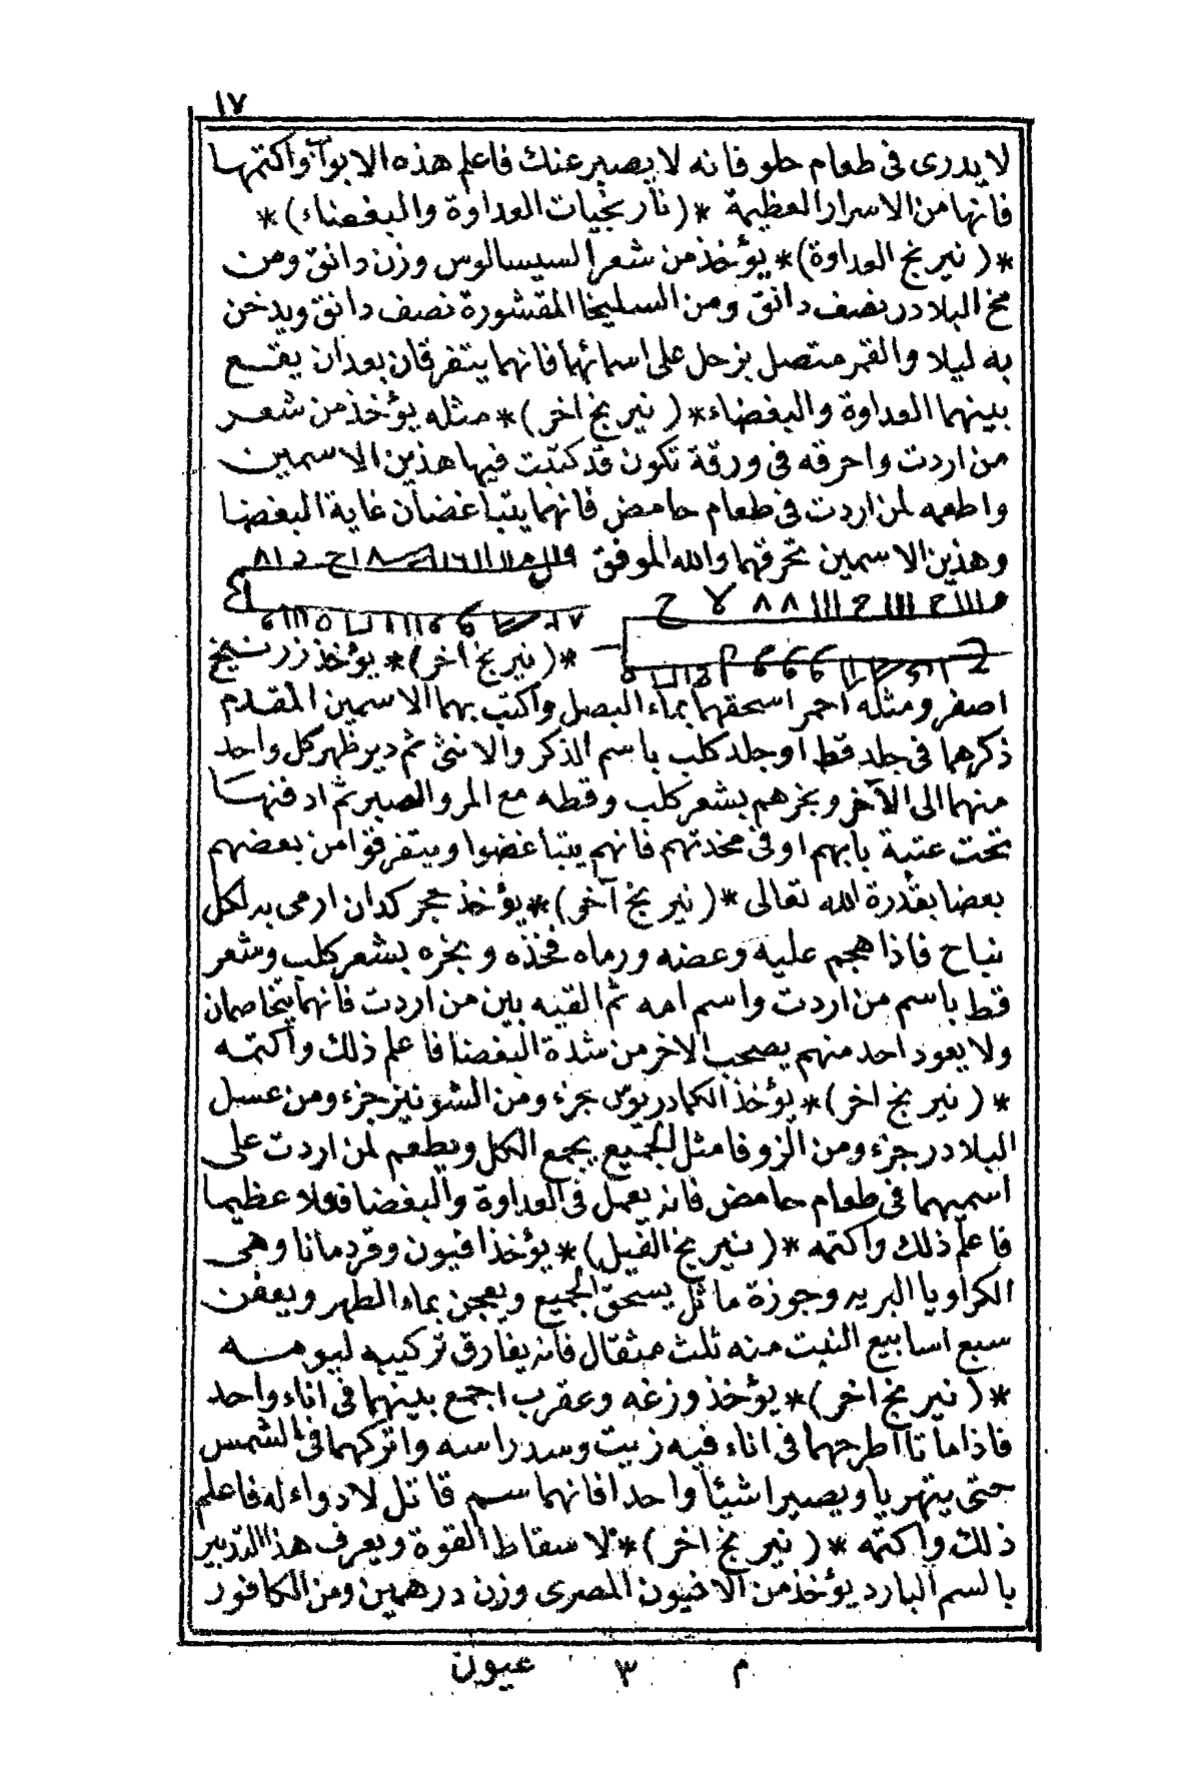 ١٧
لا يدرى فى طعام حلو فانه لا يصبر عنك فاعلم هذه الابواب واكتمها
فانها من الاسرار العظيمة *(نارنجيات العداوة والبغضاء)*
*(نيرنج العداوة)* يؤخذ من شعر السيسالوس وزن دانق ومن
مخ البلادر نصف دانق ومن السليخا المقشورة نصف دانق ويدخن
به ليلا والقمر متصل بزحل على اسمائهما فانهما يتفرقان بعد ان يقع
بينهما العداوة والبغضاء *(نيرنج اخر)* مثله يؤخذ من شعر
من اردت واحرقه فى ورقة تكون قد كتبت فيها هذين الاسمين
واطعمه لمن اردت فى طعام حامض فانهما يتباغضان غاية البغضا
وهذين الاسمين تحرقهما والله الموفق
*(نيرنج اخر)* يؤخذ زرنيخ
اصفر ومثله احمر اسحقهما بماء البصل واكتب بهما الاسمين المقدم
ذكرهما فى جلد قط او جلد كلب باسم الذكر والانثى ثم دير ظهر كل واحد
منهما الى الآخر وبخرهم بشعر كلب وقطه مع المر والصبر ثم ادفنها
تحت عتبة بابهم او فى مخدتهم فانهم يتباغضوا ويتفرقوا من بعضهم
بعضا بقدرة الله تعالى *(نيرنج آخر)* يؤخذ حجر كدان ارمى به لكلب
نباح فاذا هجم عليه وعضه ورماه فخذه وبخره بشعر كلب وشعر
قط باسم من اردت واسم امه ثم القيه بين من اردت فانهما يتخاصمان
ولا يعود احد منهم يصحب الاخر من شدة البغضا فاعلم ذلك واكتمه
*(نيرنج اخر)* يؤخذ الكمادريوس جزء ومن الشونيز جزء ومن عسل
البلادر جزء ومن الزوفا مثل الجميع يجمع الكل ويطعم لمن اردت على
اسميهما فى طعام حامض فانه يعمل فى العداوة والبغضا فعلا عظيما
فاعلم ذلك واكتمه *(نيرنج الفيل)* يؤخذ افيون وقردمانا وهى
الكراويا البريه وجوزة ماثل يسحق الجميع ويعجن بماء الطهر ويعفن
سبع اسابيع النبت منه ثلث مثقال فانه يفارق تركيبه ليومه
*(نيرنج اخر)* يؤخذ وزغه وعقرب اجمع بينهما فى اناء واحد
فاذا ماتا اطرحهما فى اناء فيه زيت وسد راسه واتركهما فى الشمس
حتى يتهريا ويصيرا شيئا واحدا فانهما سم قاتل لا دواء له فاعلم
ذلك واكتمه *(نيرنج اخر)* لاسقاط القوة ويعرف هذا التدبير
بالسم البارد يؤخذ من الافيون المصرى وزن درهمين ومن الكافور
م ٣ عيون